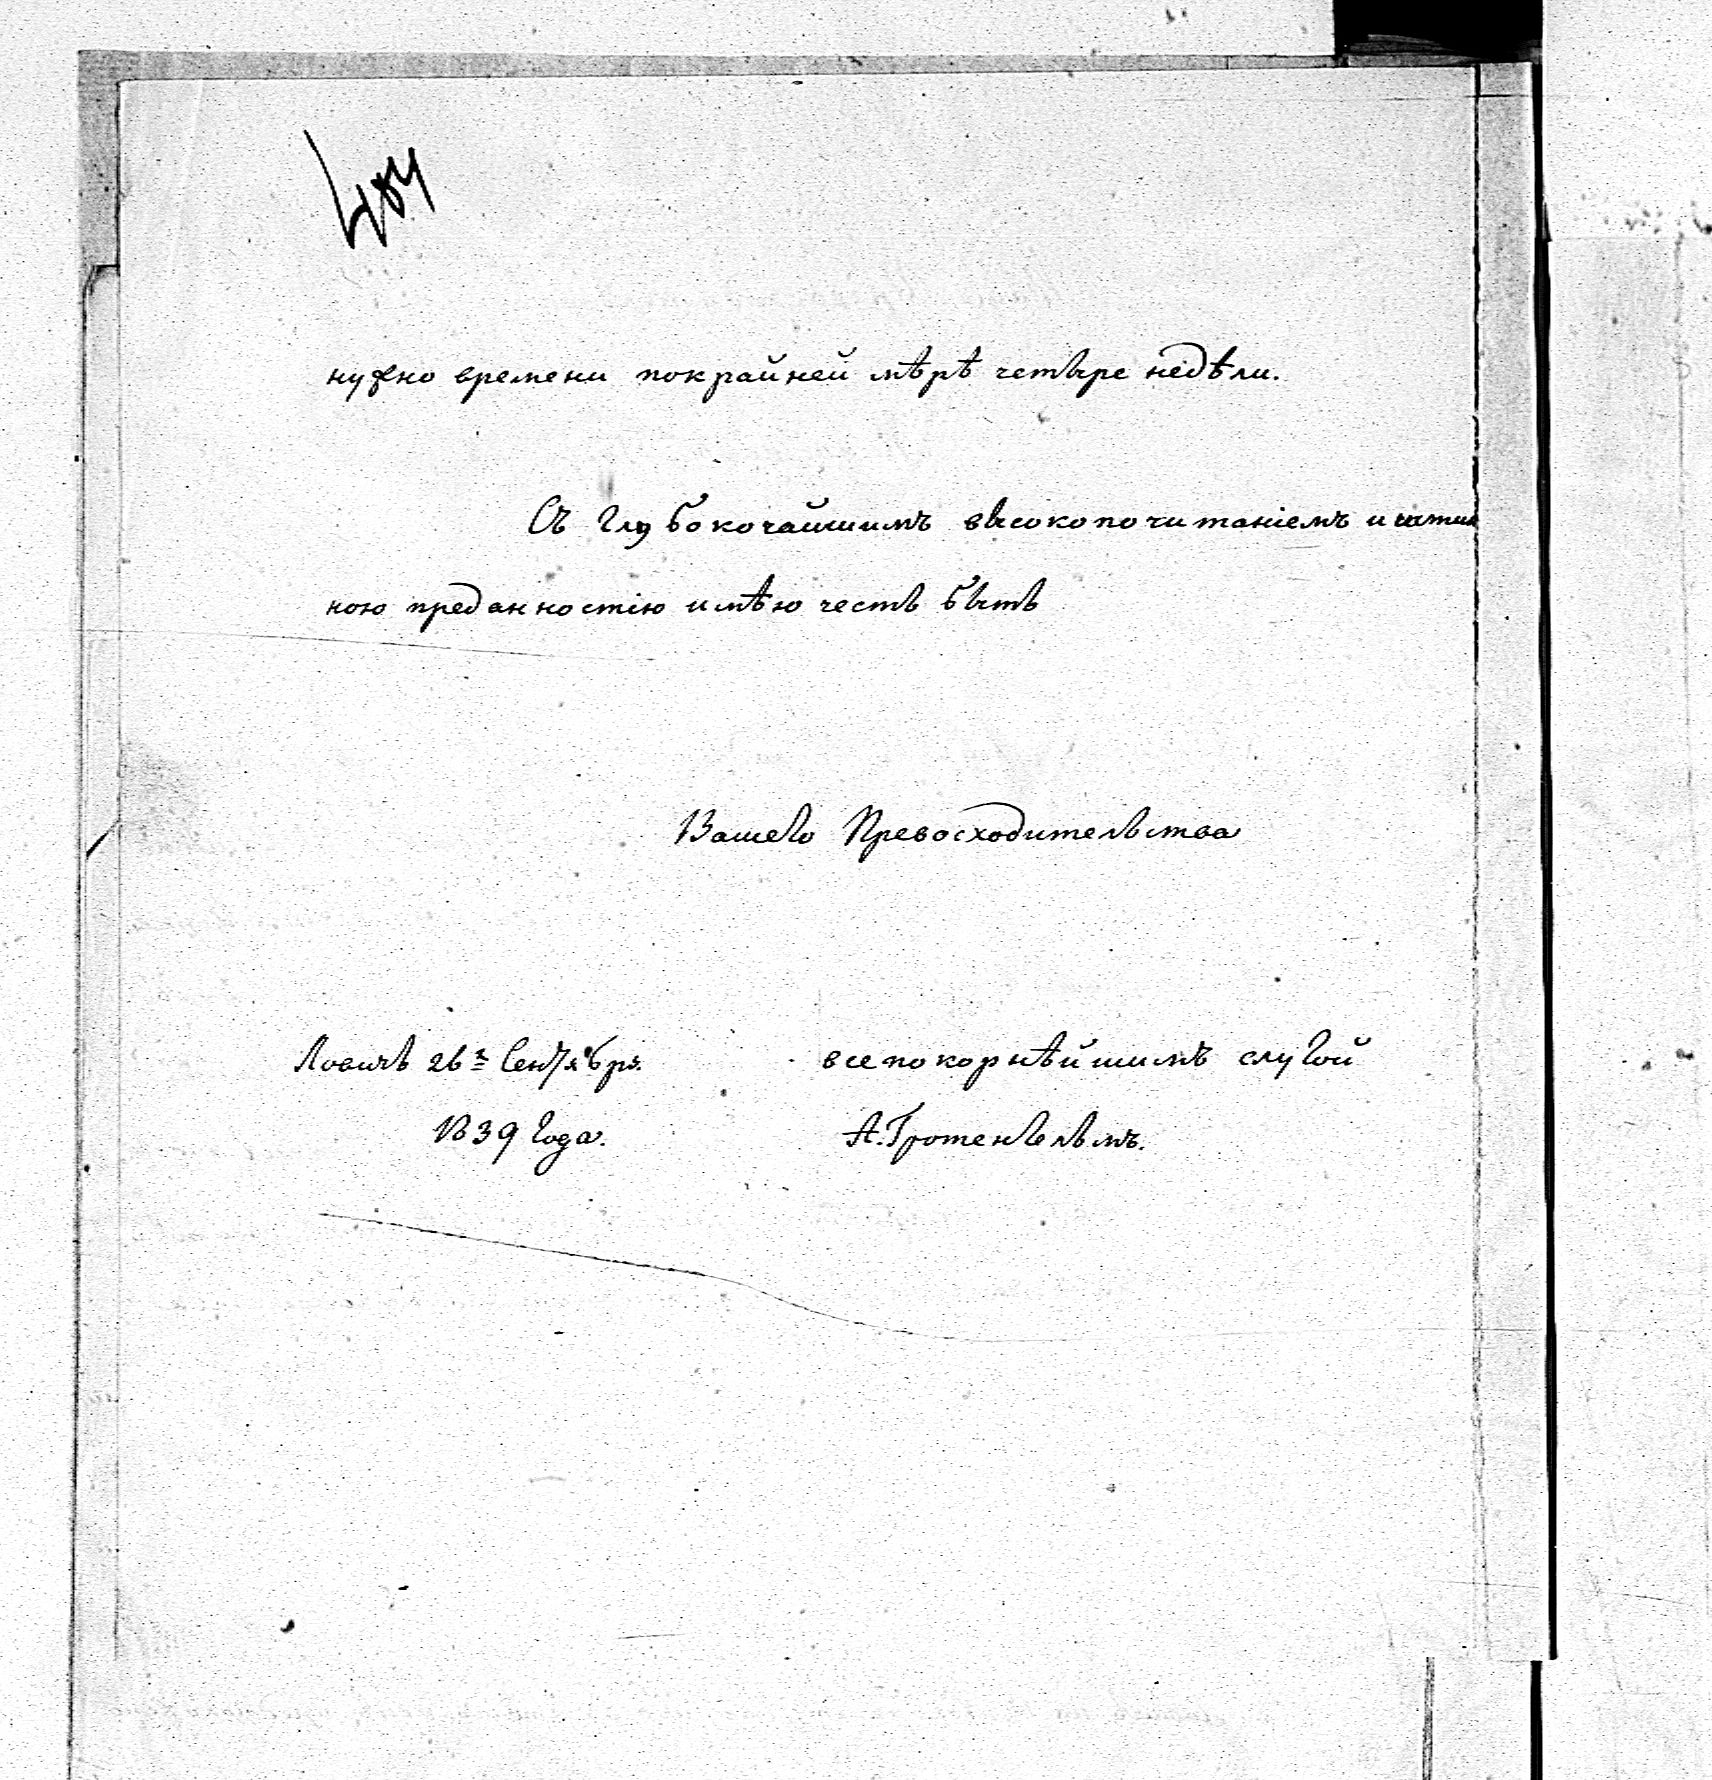 484
нужно времени покрайней мѣрѣ четыре недѣли.
Съ глубокочайшимъ высокопочитаніемъ и истин
ною преданностію имѣю честь быть
Вашего Превосходительства
Ловичь 26го Сентября.
всепокорнѣйшимъ слугой
1839 года.
А. Гротенгельмъ.